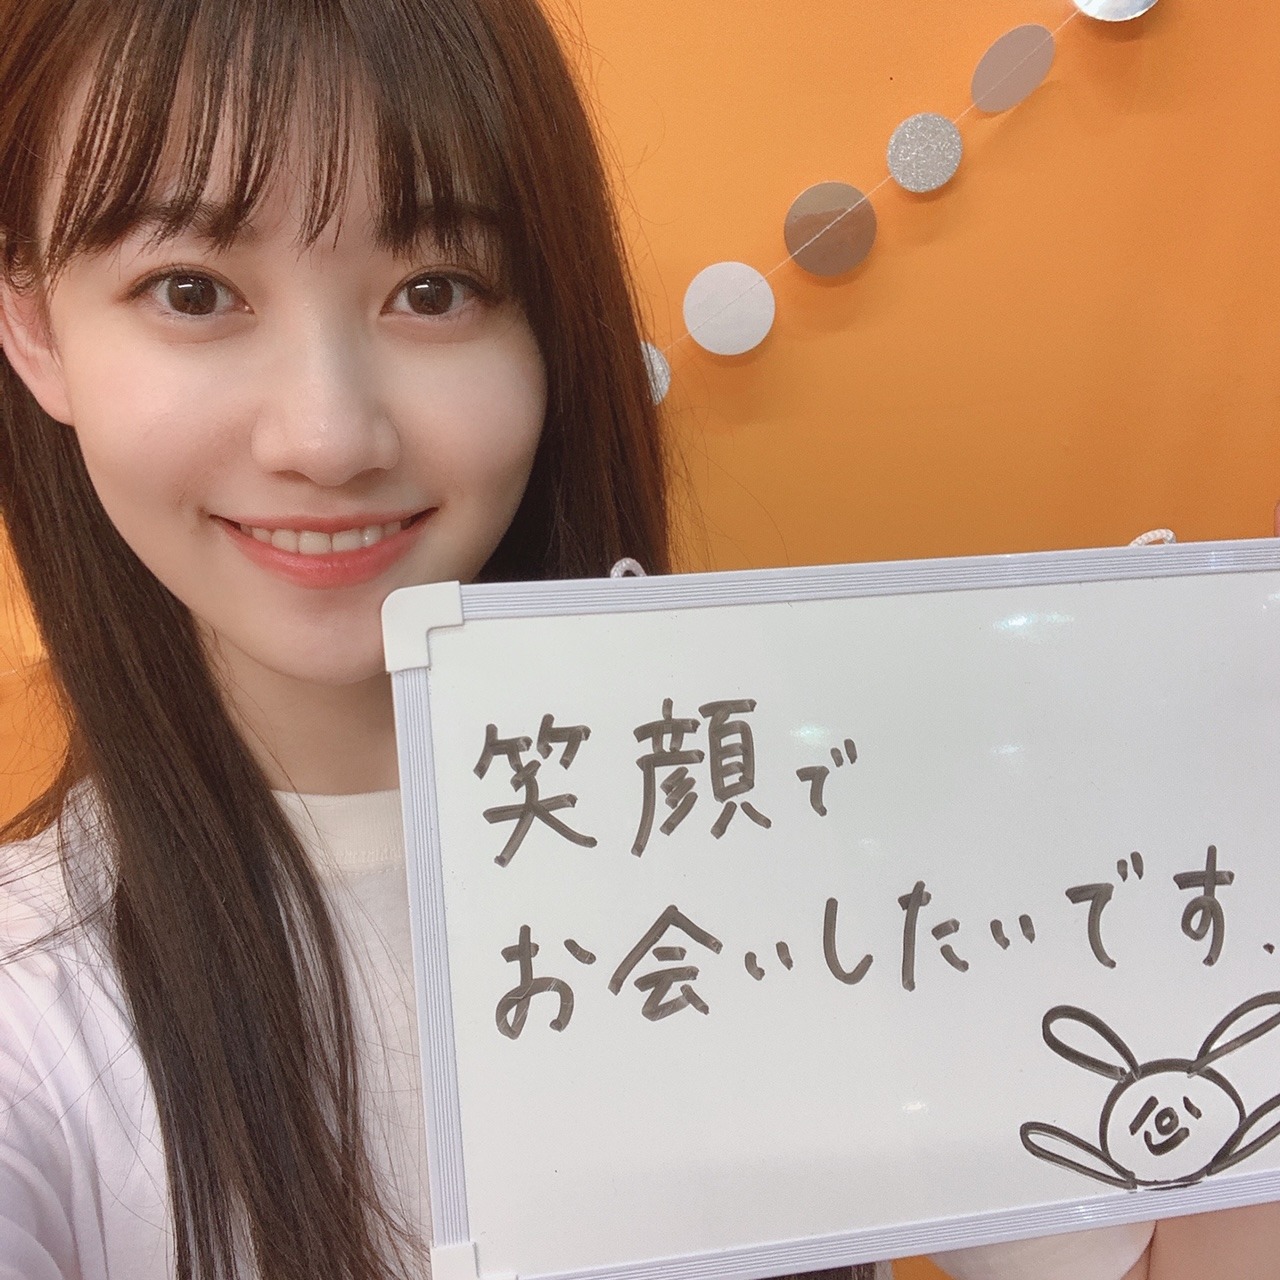 笑顔で
お会いしたいです、